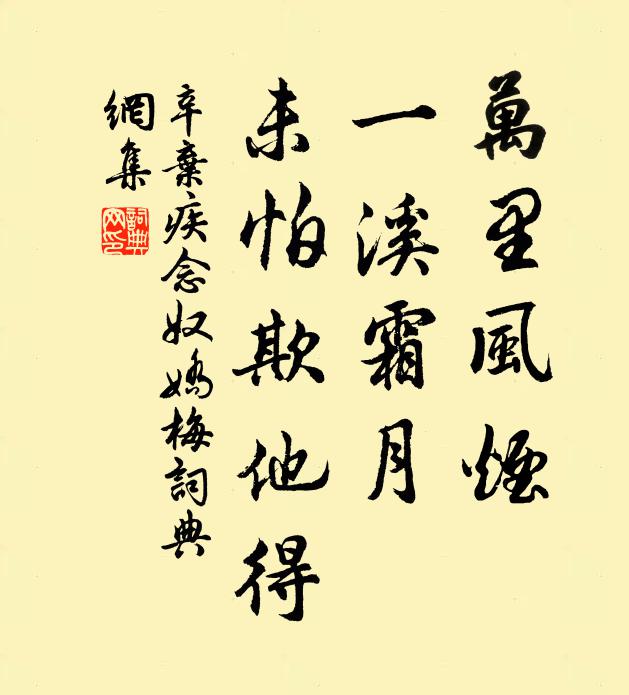 萬里風煙
一溪霜月
未怕欺他得
辛棄疾念奴嬌梅詞典
網集
詞典網印